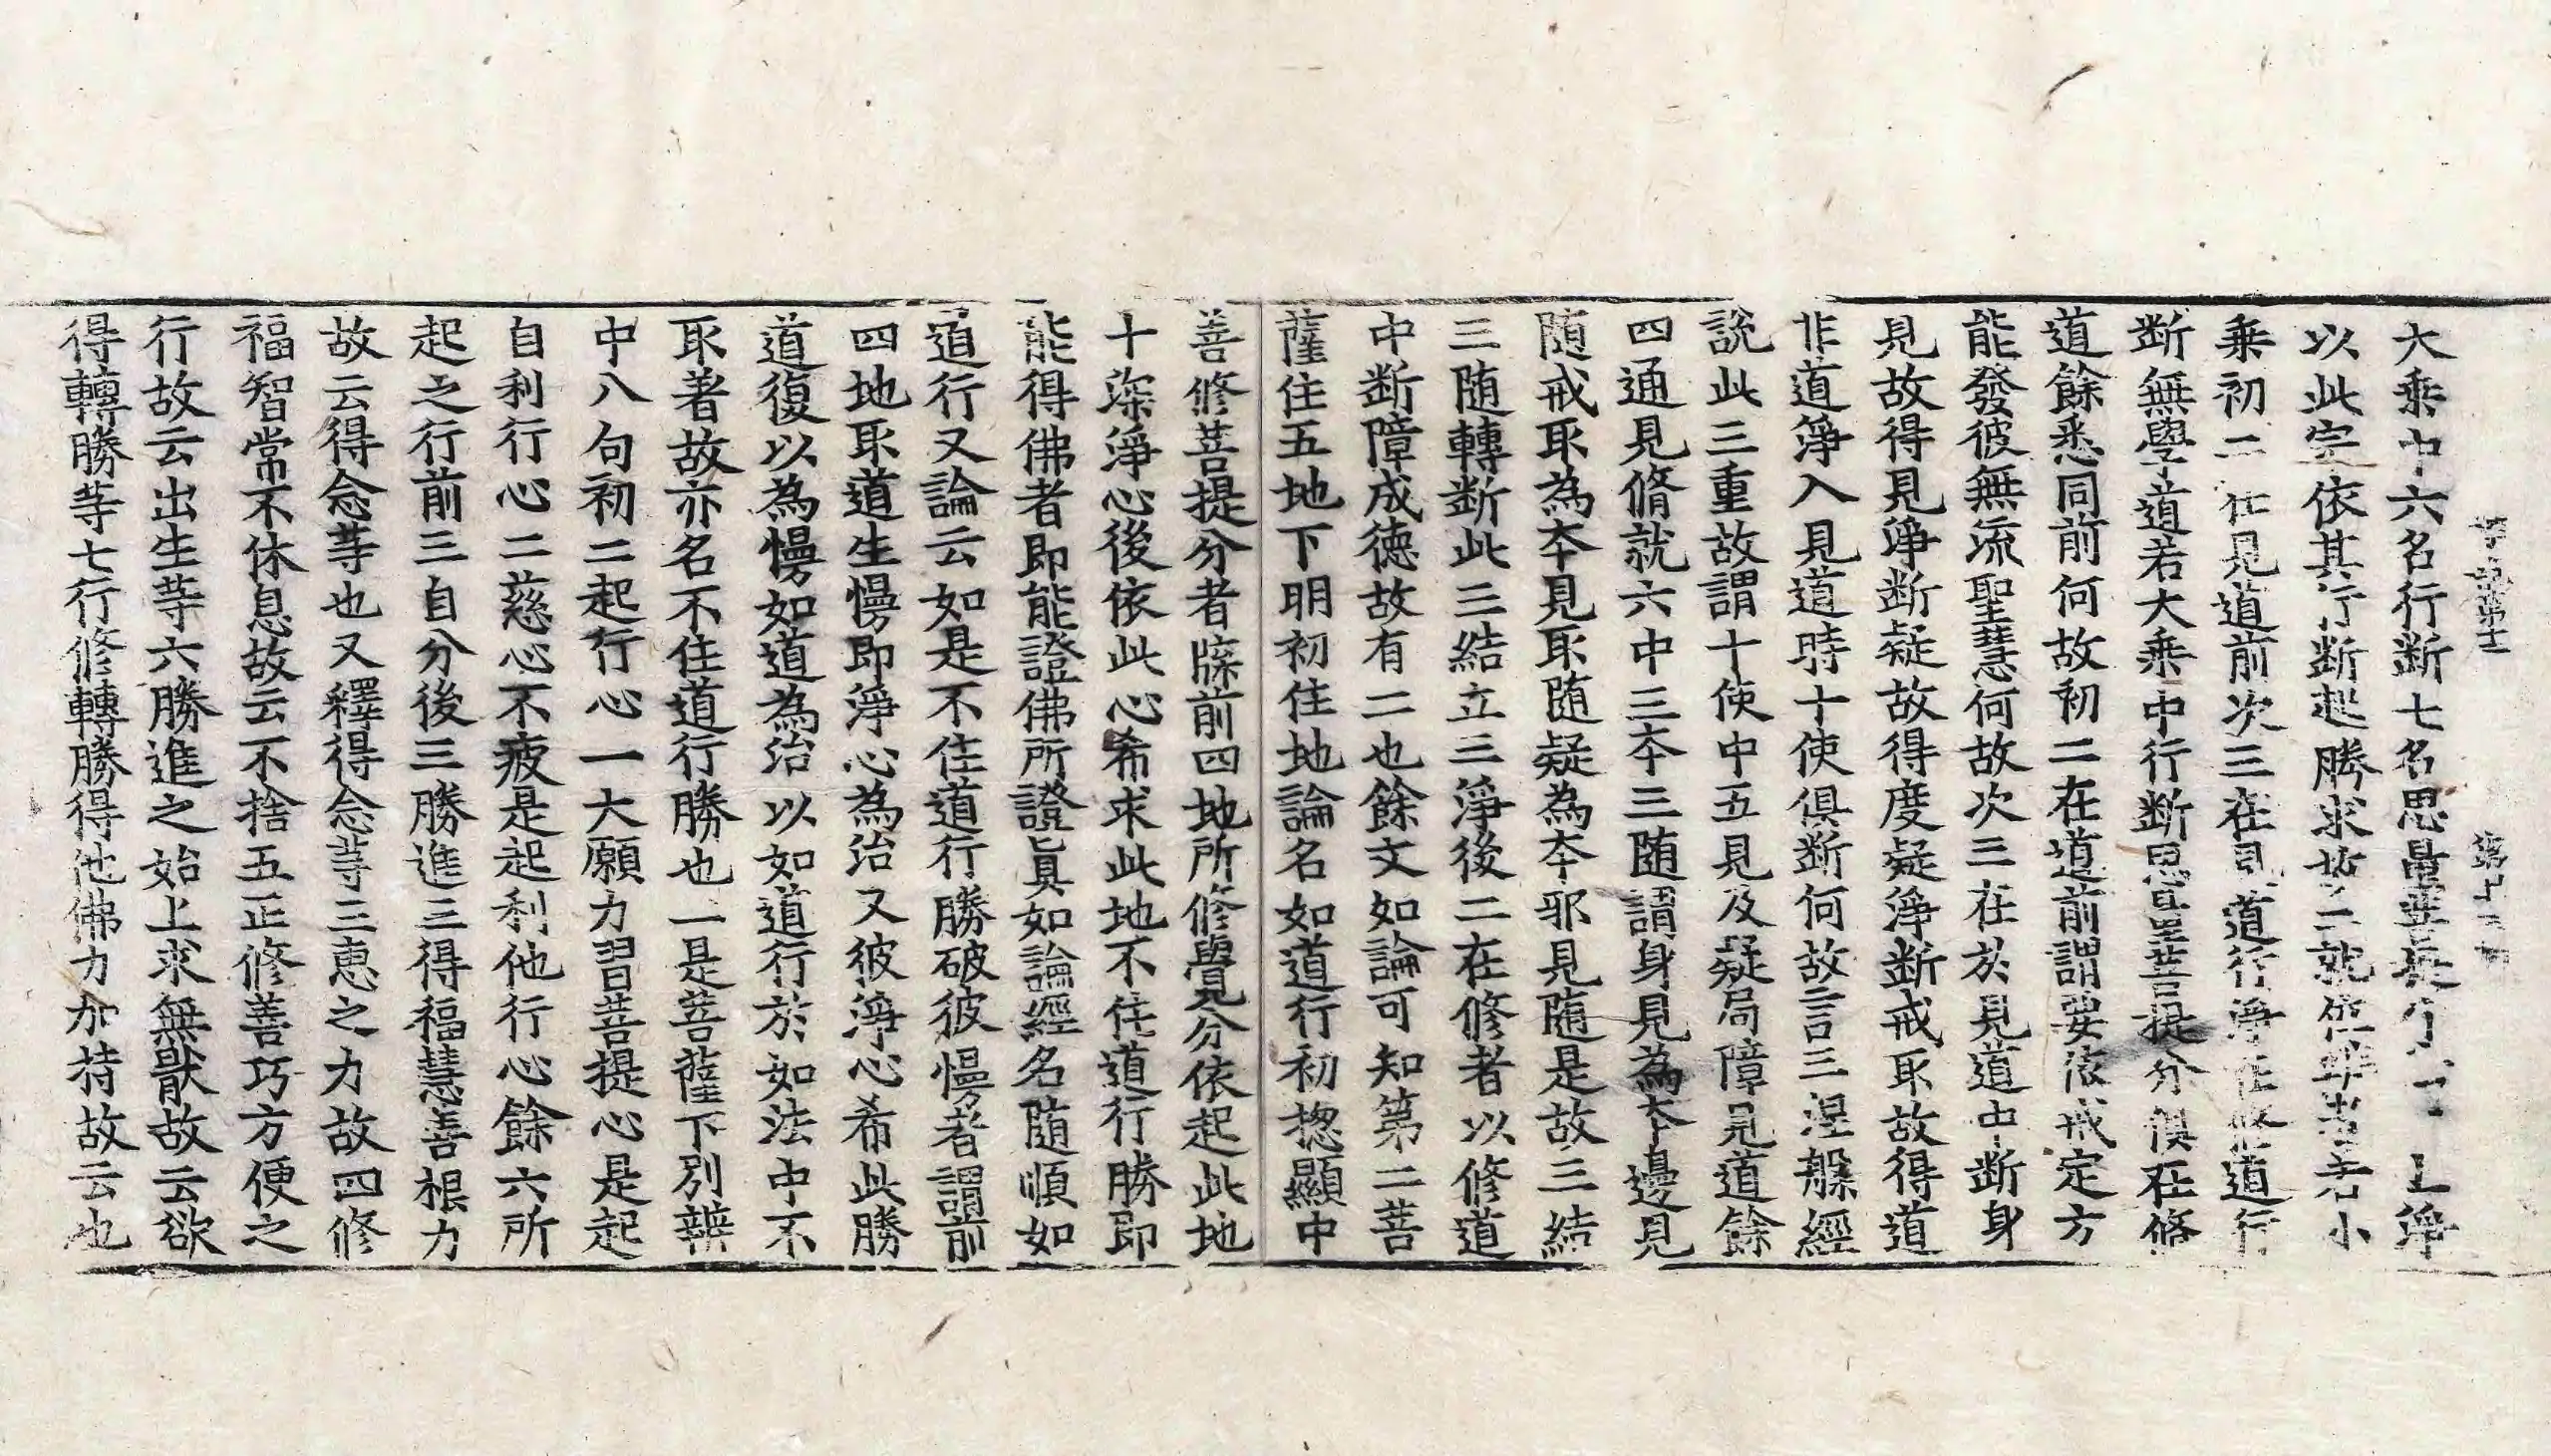 大乘中六名行断七名思量菩提分上上淨
以此定依其行断起勝求故二就位辨者若小
乘初二在見道前次三在見道行淨在修道行
断無學道若大乘中行断思量菩提分俱在修
道餘悉同前何故初二在道前謂要依戒定方
能發彼無流聖慧何故次三在於見道中断身
見故得見淨断疑故得度疑淨断戒取故得道
非道淨入見道時十使俱断何故言三涅槃經
說此三重故謂十使中五見及疑局障見道餘
四通見脩就六中三本三随謂身見為本邊見
随戒取為本見取随疑為本邪見随是故三結
三随轉断此三結立三淨後二在修者以修道
中断障成德故有二也餘文如論可知第二菩
薩住五地下明初住地論名如道行初摠顯中
善修菩提分者牒前四地所修覺分依起此地
十深淨心後依此心希求此地不住道行勝即
能得佛者即能證佛所證真如論經名随順如
道行又論云如是不住道行勝破彼慢者謂前
四地取道生慢即淨心為治又彼淨心希此勝
道復以為慢如道為治以如道行於如法中不
取著故亦名不住道行勝也一是菩薩下別辨
中八句初二起行心一大願力習菩提心是起
自利行心二慈心不疲是起利他行心餘六所
起之行前三自分後三勝進三得福慧善根力
故云得念䓁也又釋得念䓁三惠之力故四修
福智常不休息故云不捨五正修善巧方便之
行故云出生䓁六勝進之始上求無猒故云欲
得轉勝䓁七行修轉勝得他佛力加持故云也